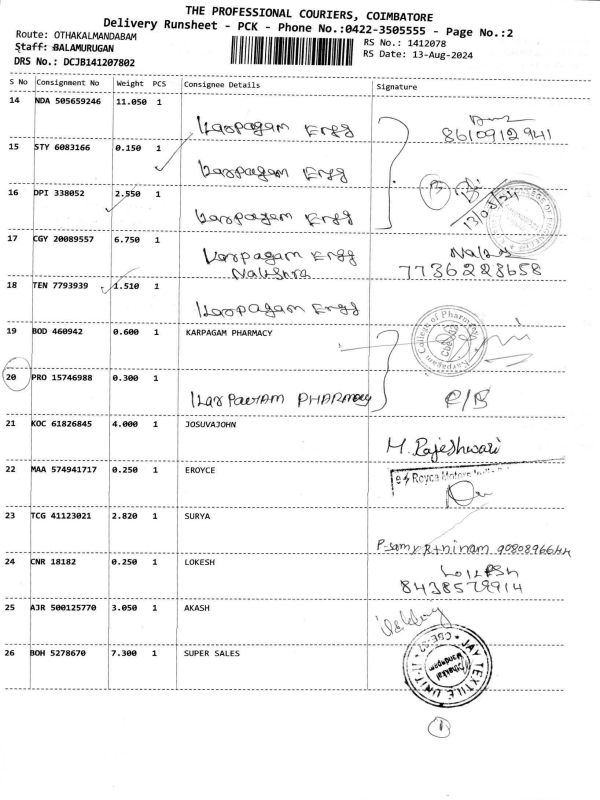 THE PROFESSIONAL COURIERS, COIMBATORE
Delivery Runsheet - PCK - Phone No.:0422-3505555 - Page No.:2
Route: OTHAKALMANDABAM
RS No.: 1412078
Staff: BALAMURUGAN
RS Date: 13-Aug-2024
DRS No.: DCJB141207802
S No Consignment No Weight PCS Consignee Details Signature
14 NDA 505659246 11.050 1 Karpagam Engg
8610912941
15 STY 6083166 0.150 1 Karpagam Engg
16 DPI 338052 2.550 1 Karpagam Engg
13/08/24
17 CGY 20089557 6.750 1 Karpagam Engg
7736223658
18 TEN 7793939 1.510 1 Karpagam Engg
19 BOD 460942 0.600 1 KARPAGAM PHARMACY
Karpagam College of Pharmacy
20 PRO 15746988 0.300 1 KARPAGAM PHARMACY
21 KOC 61826845 4.000 1 JOSUVAJOHN M. Rajeshwari
22 MAA 574941717 0.250 1 EROYCE
Royce Motors
23 TCG 41123021 2.820 1 SURYA
24 CNR 18182 0.250 1 LOKESH LOKESH
8438579914
25 AJR 500125770 3.050 1 AKASH
26 BOH 5278670 7.300 1 SUPER SALES
JAY TEXTILE UNIT-II
1